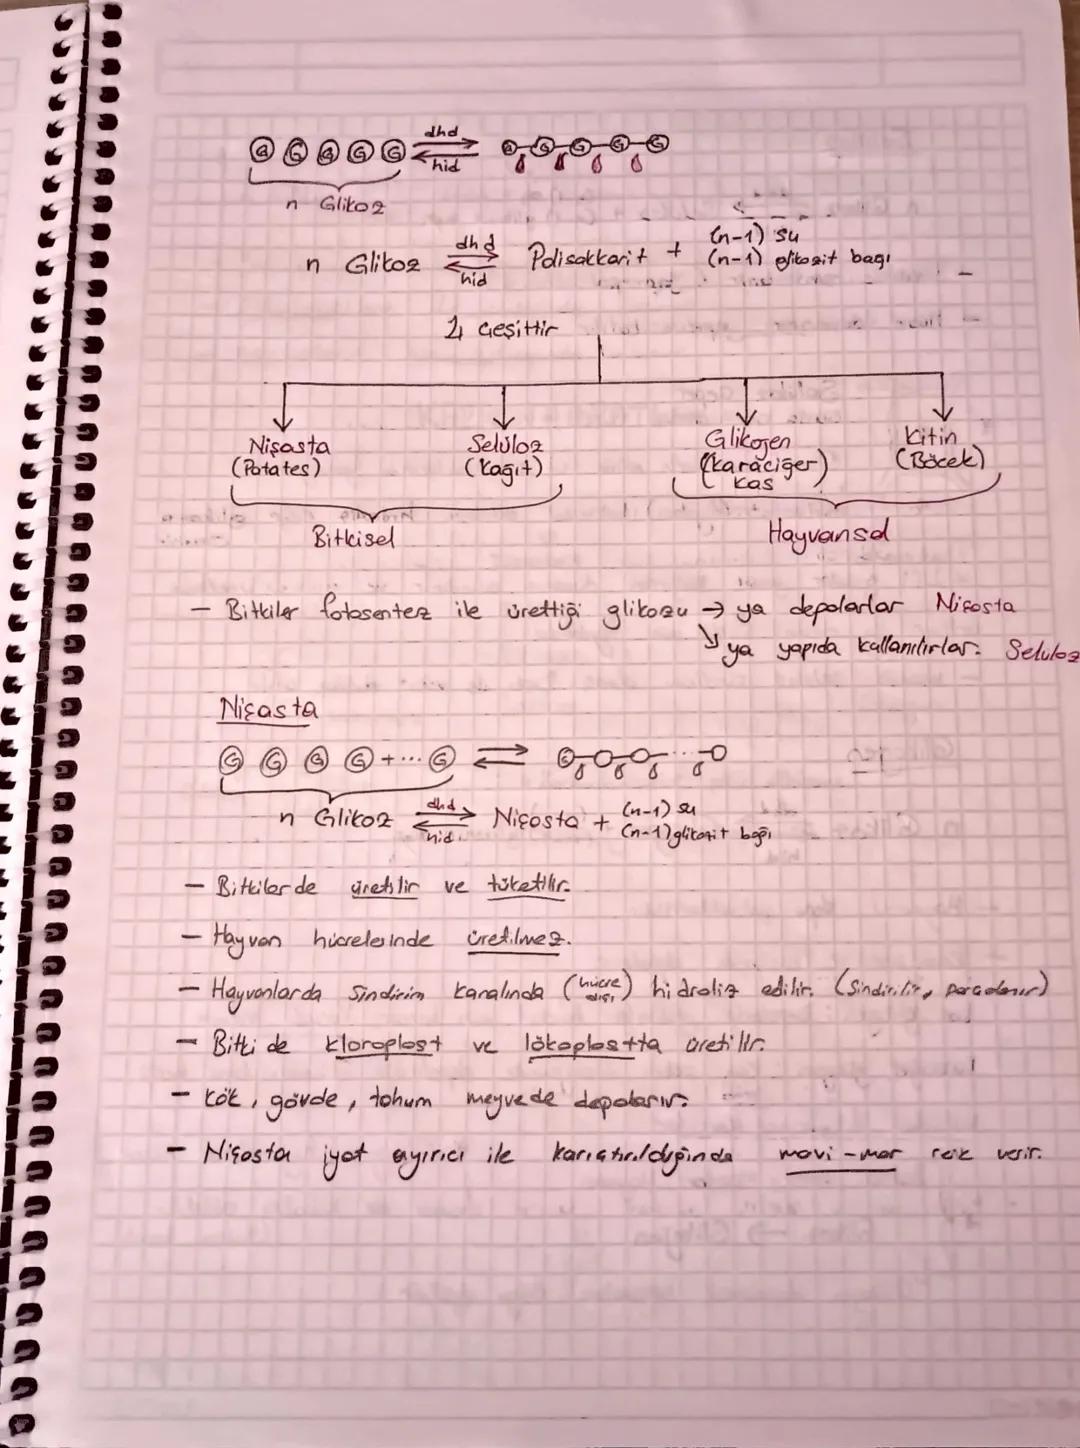 G G G G G dhd hid G G G G G
n Glikoz
n Glikoz dhd hid Polisakkarit + (n-1) su
(n-1) glikozit bağı
4 çeşittir
Nişasta Selüloz Glikojen Kitin
(Patates) (Kağıt) (Karaciğer) (Böcek)
Kas
Bitkisel Hayvansal
- Bitkiler fotosentez ile ürettiği glikozu → ya depolarlar Nişosta
↘ ya yapıda kullanılırlar. Seluloz
Nişasta
G G G G +... G ⇌ G ...
n Glikoz dhd hid Nişosta + (n-1) su
(n-1) glikozit bağı
- Bitkilerde üretilir ve tüketilir.
- Hayvan hücrelerinde üretilmez.
- Hayvanlarda Sindirim kanalında (hücre dışı) hidroliz edilir. (Sindirilir, parçalanır)
- Bitkide kloroplast ve lökoplastta üretilir.
- Kök, gövde, tohum meyvede depolanır.
- Nişosta iyot ayırıcı ile karıştırıldığında mavi-mor renk verir.